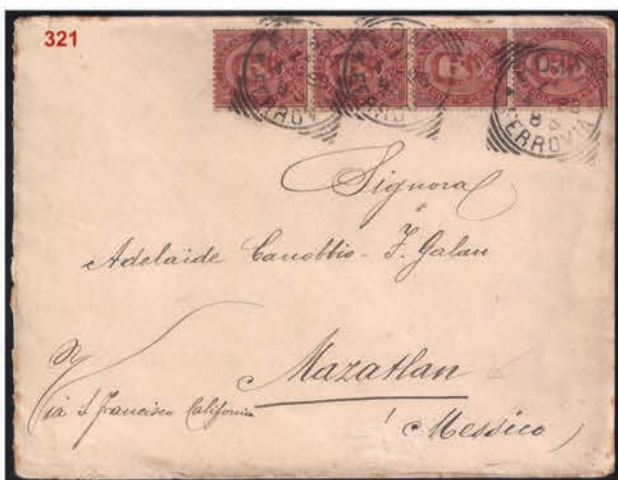 321
FERROVIA
Signora
Adelaide Canobbio - F. Galan
Mazatlan
Via S Francisco California
(Messico)